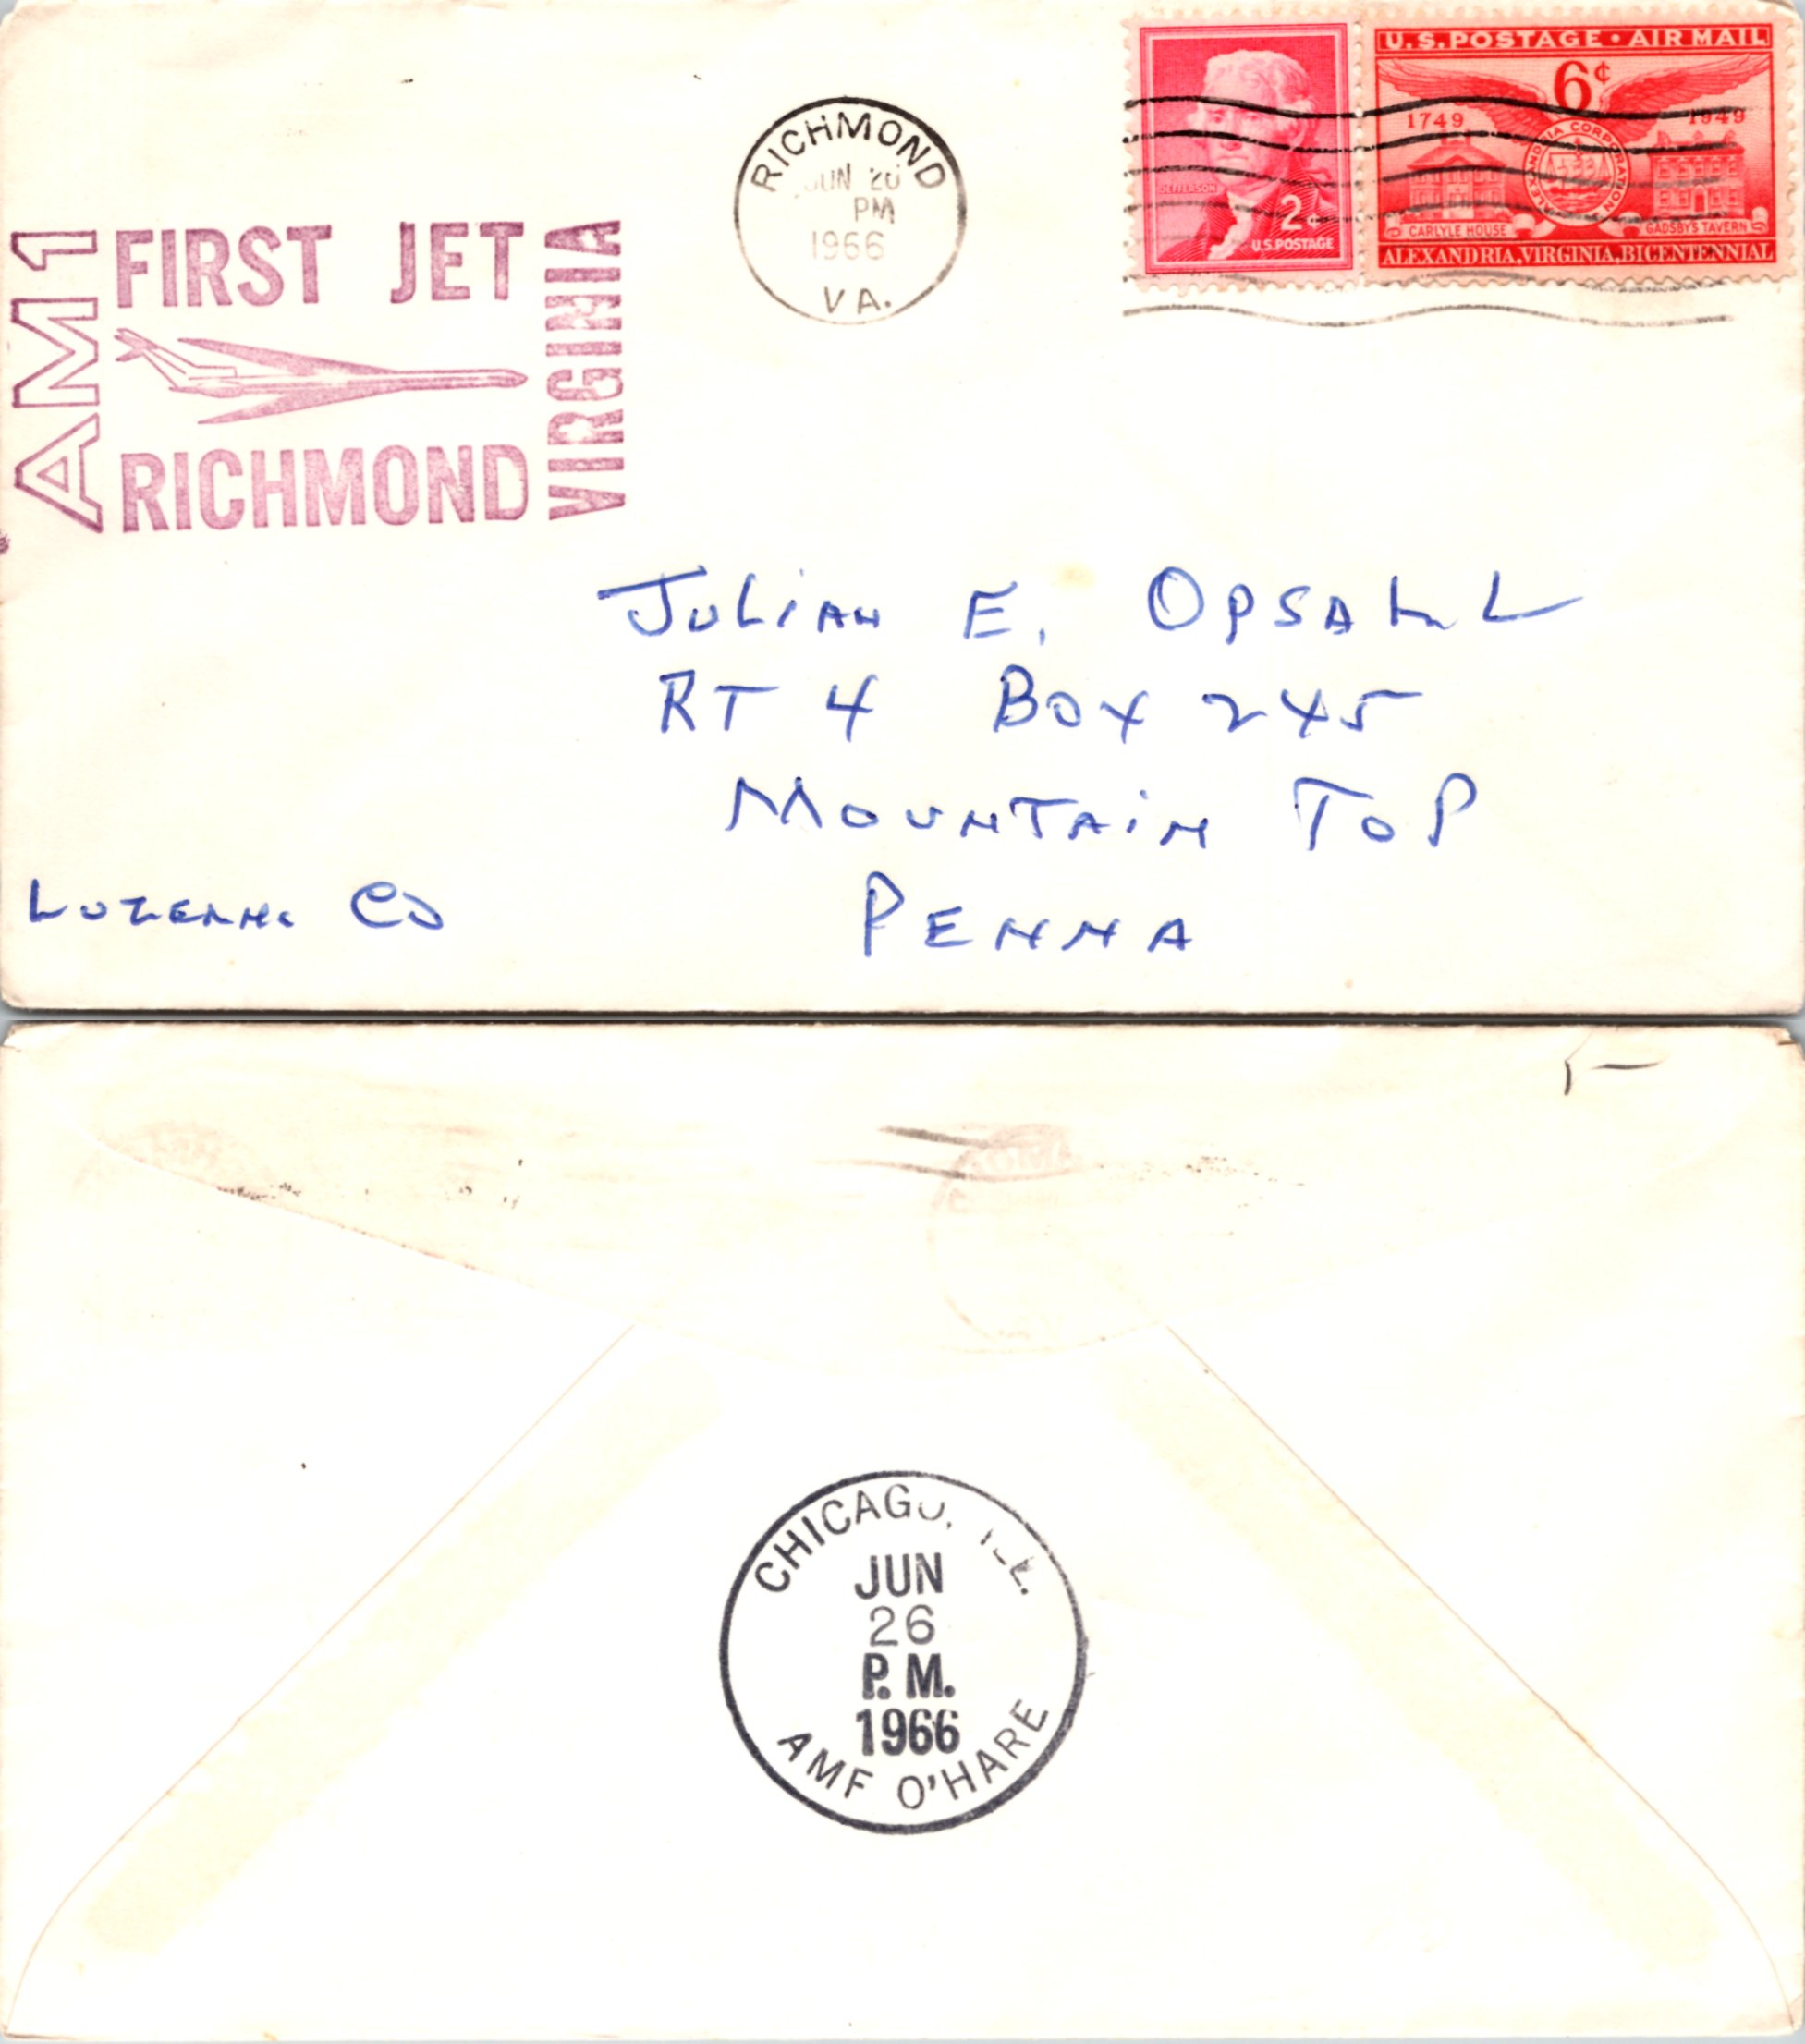 AM 1
FIRST JET
RICHMOND
VIRGINIA
RICHMOND
JUN
PM
1966
VA.
JEFFERSON
2¢
U.S. POSTAGE
U.S. POSTAGE • AIR MAIL
6¢
1749
1949
ALEXANDRIA CORPORATION
CARLYLE HOUSE
GADSBYS TAVERN
ALEXANDRIA, VIRGINIA, BICENTENNIAL
JULIAN E. OPSAHL
RT 4 BOX 245
MOUNTAIN TOP
LUZERNE CO
PENNA
CHICAGO, ILL.
JUN
26
P.M.
1966
AMF O'HARE